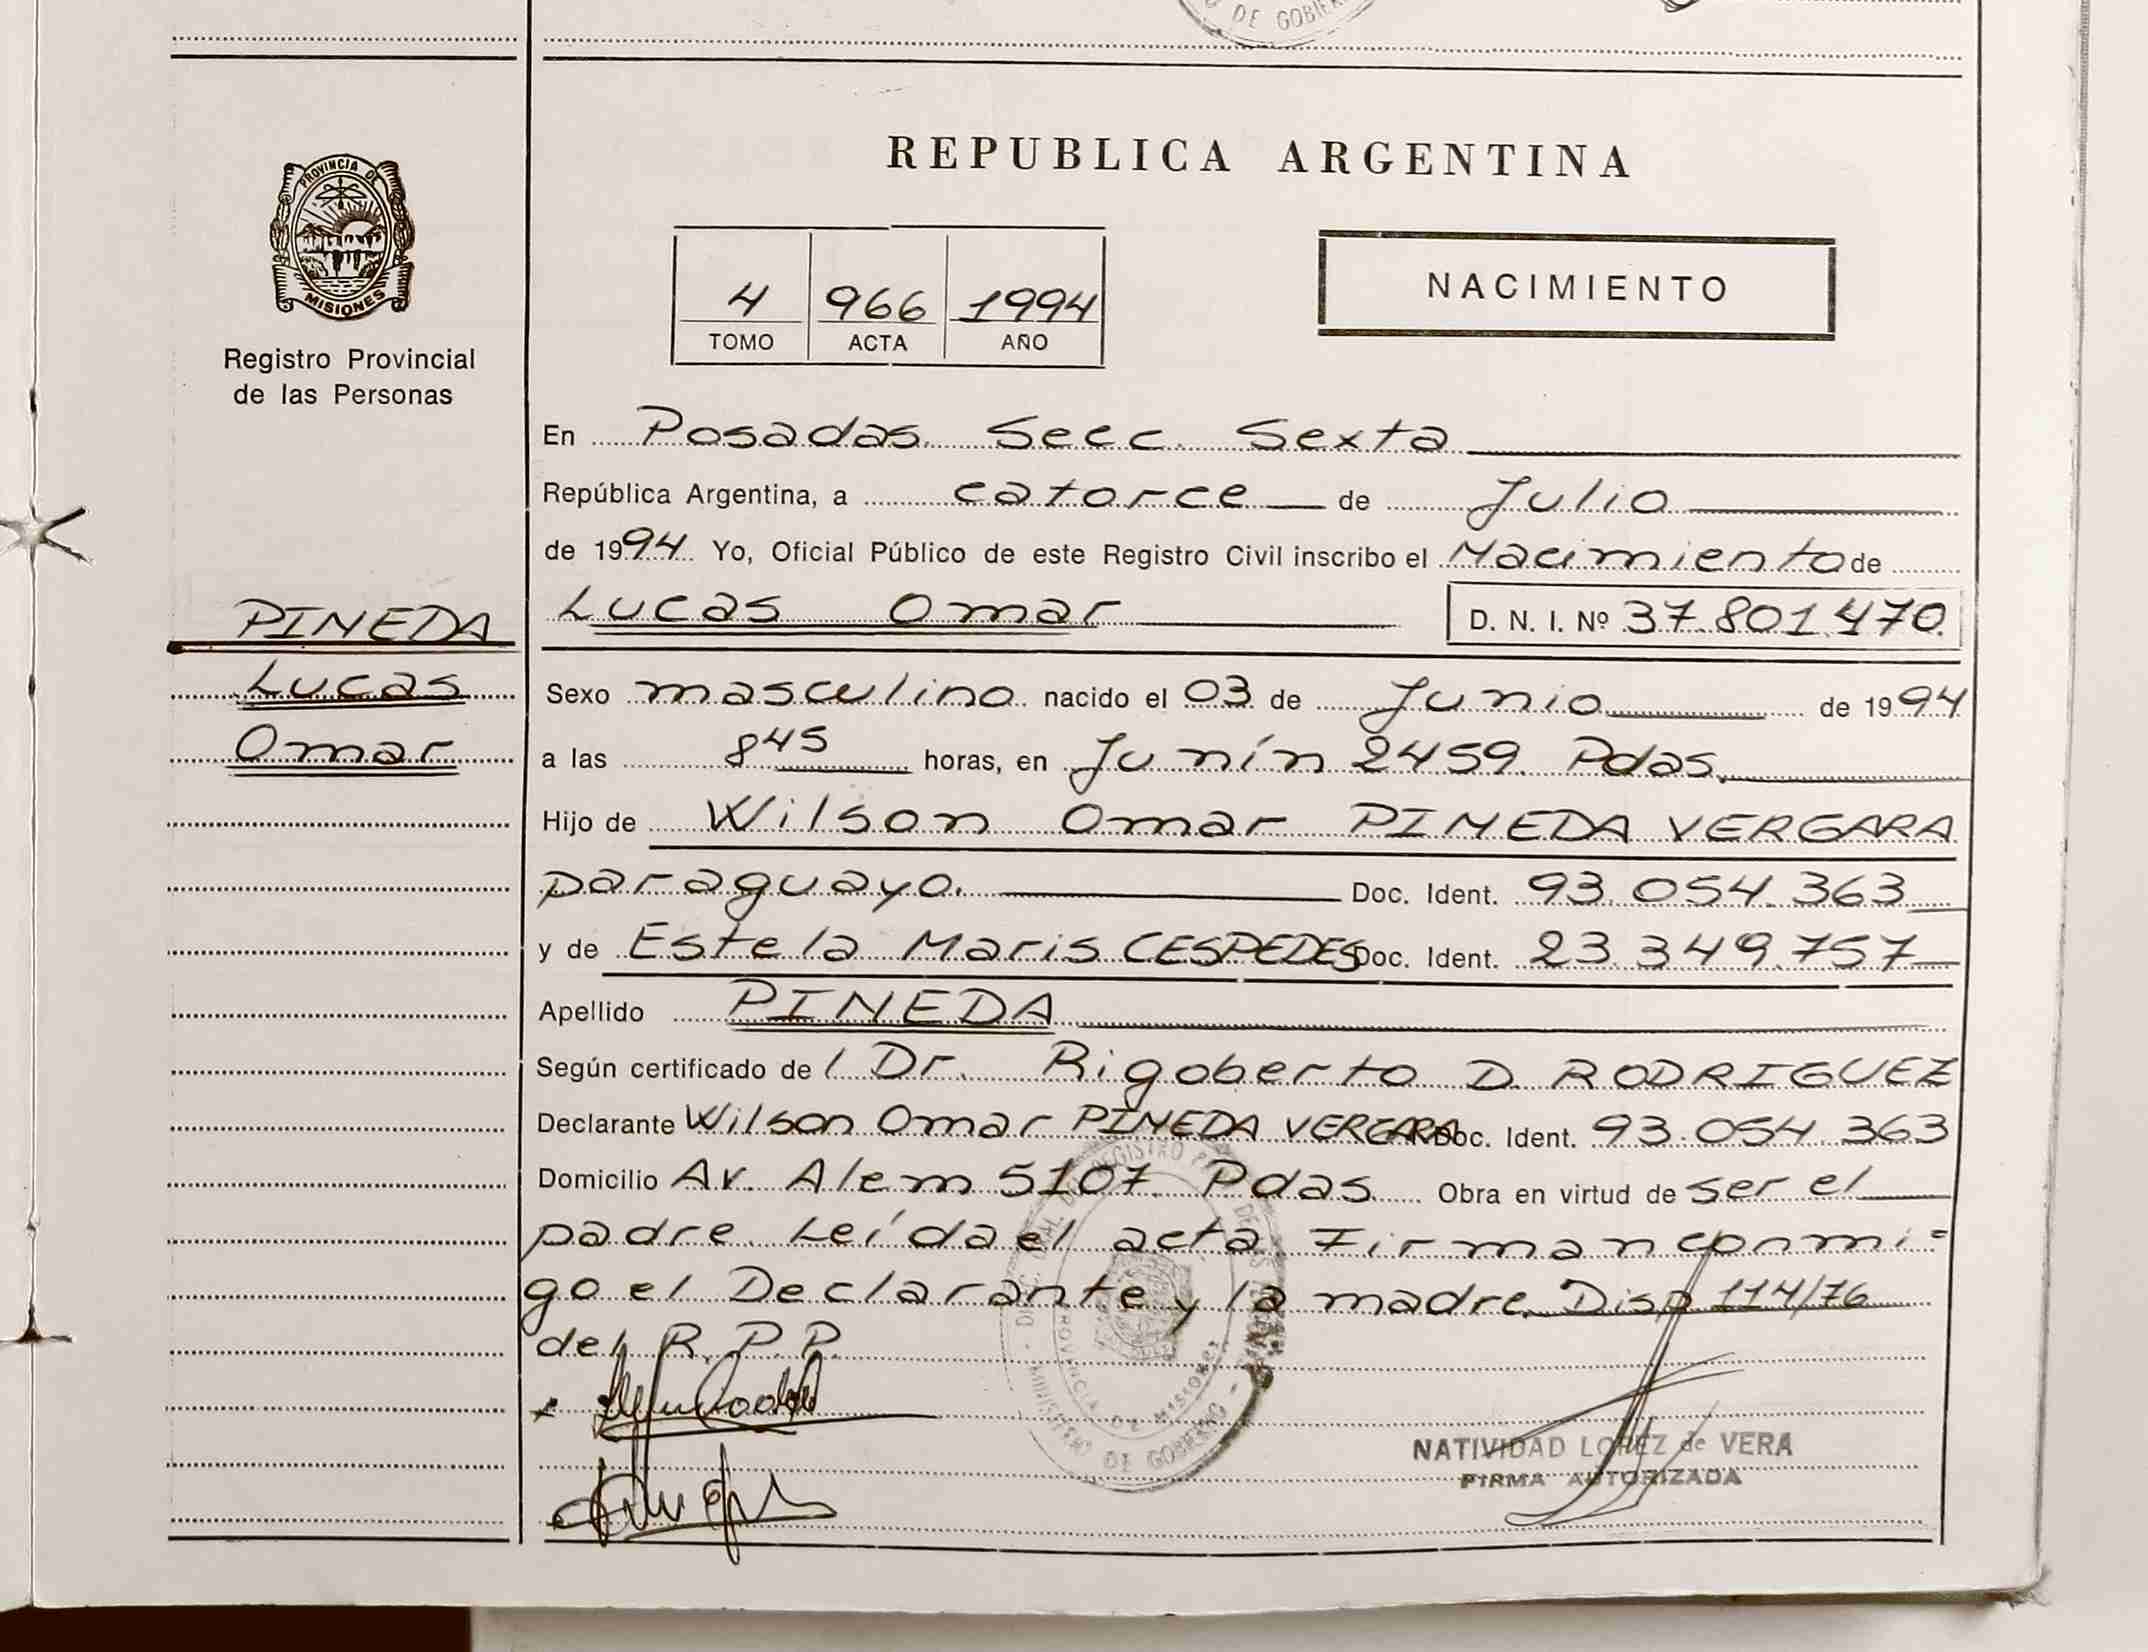 DE GOBIER
REPUBLICA ARGENTINA
PROVINCIA DE
MISIONES
Registro Provincial
de las Personas
4 966 1994
TOMO ACTA AÑO
NACIMIENTO
En Posadas Secc. Sexta
República Argentina, a catorce de Julio
de 1994 Yo, Oficial Público de este Registro Civil inscribo el Nacimiento de
PINEDA
Lucas Omar D. N. I. Nº 37.801.470
Lucas
Sexo masculino nacido el 03 de Junio de 1994
Omar
a las 8 45 horas, en Junín 2459 Pdas.
Hijo de Wilson Omar PINEDA VERGARA
paraguayo. Doc. Ident. 93.054.363
y de Estela Maris CESPEDES Doc. Ident. 23.349.757
Apellido PINEDA
Según certificado del Dr. Rigoberto D. RODRIGUEZ
Declarante Wilson Omar PINEDA VERGARA Doc. Ident. 93.054.363
Domicilio Av. Alem 5107 Pdas. Obra en virtud de ser el
padre. Leída el acta Firman conmi-
go el Declarante y la madre. Disp 114/76
del R.P.P.
PROVINCIA DE MISIONES
MINISTERIO DE GOBIERNO
NATIVIDAD LOPEZ de VERA
FIRMA AUTORIZADA